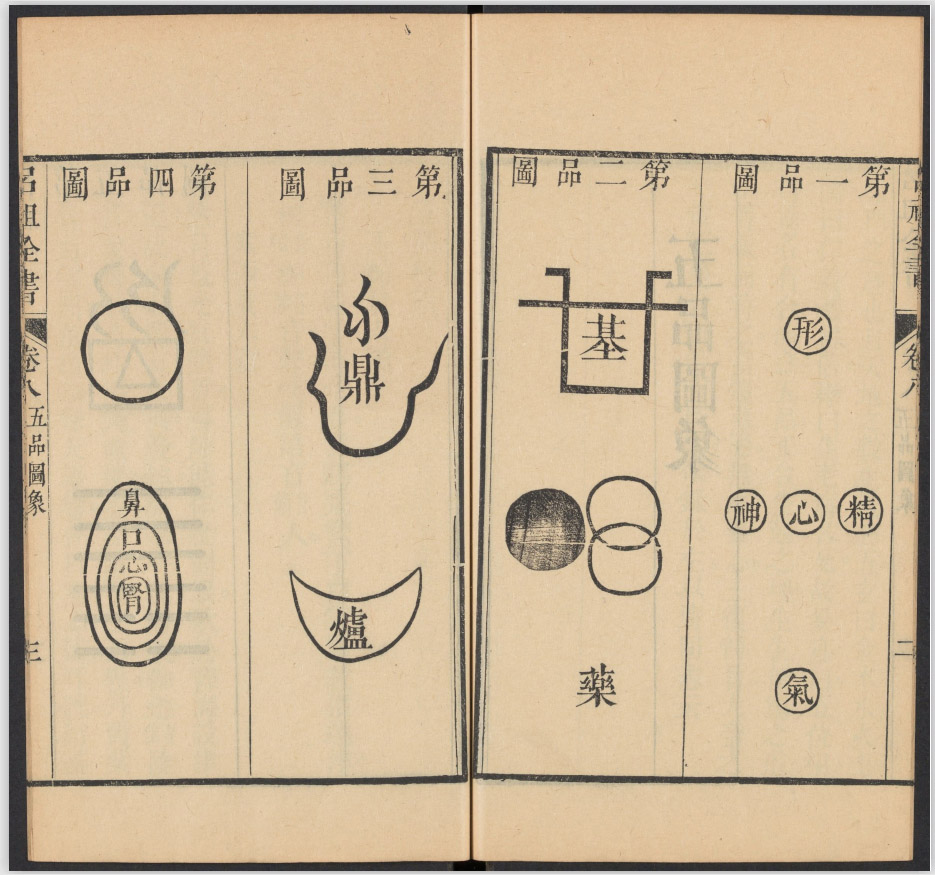 呂祖全書
卷八
二
第一品圖
形
精心神
氣
第二品圖
基
藥
第三品圖
鼎
爐
第四品圖
鼻
口
心
腎
呂祖全書
卷八
五品圖象
三